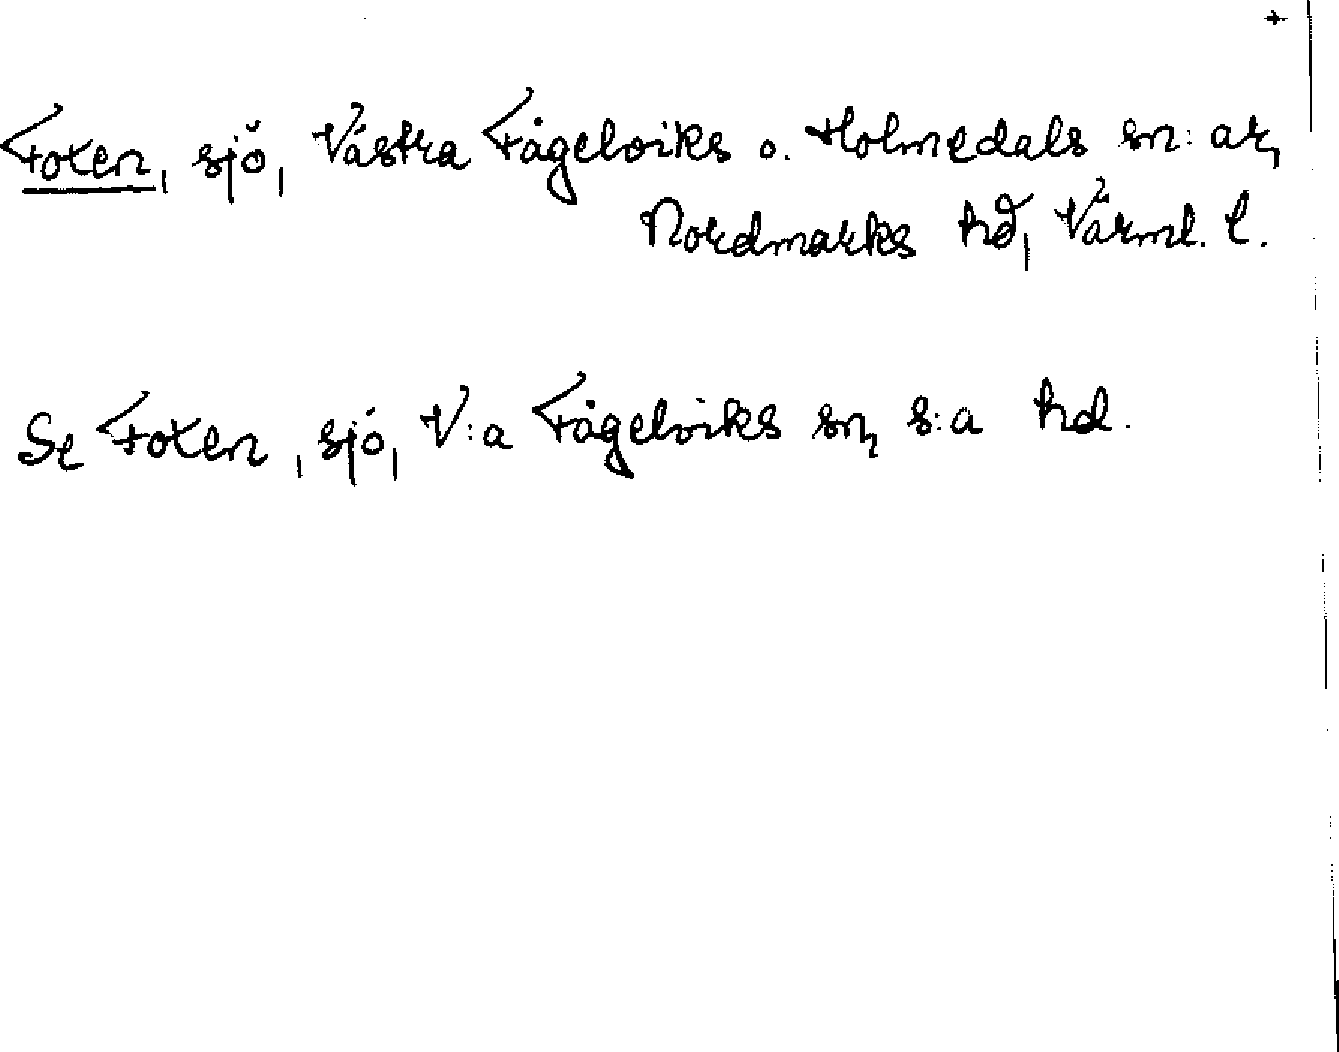 Foxen, sjö, Västra Fågelviks o. Holmedals sn:ar,
Nordmarks hd, Värml. l.
Se Foxen, sjö, V:a Fågelviks sn, s:a hd.